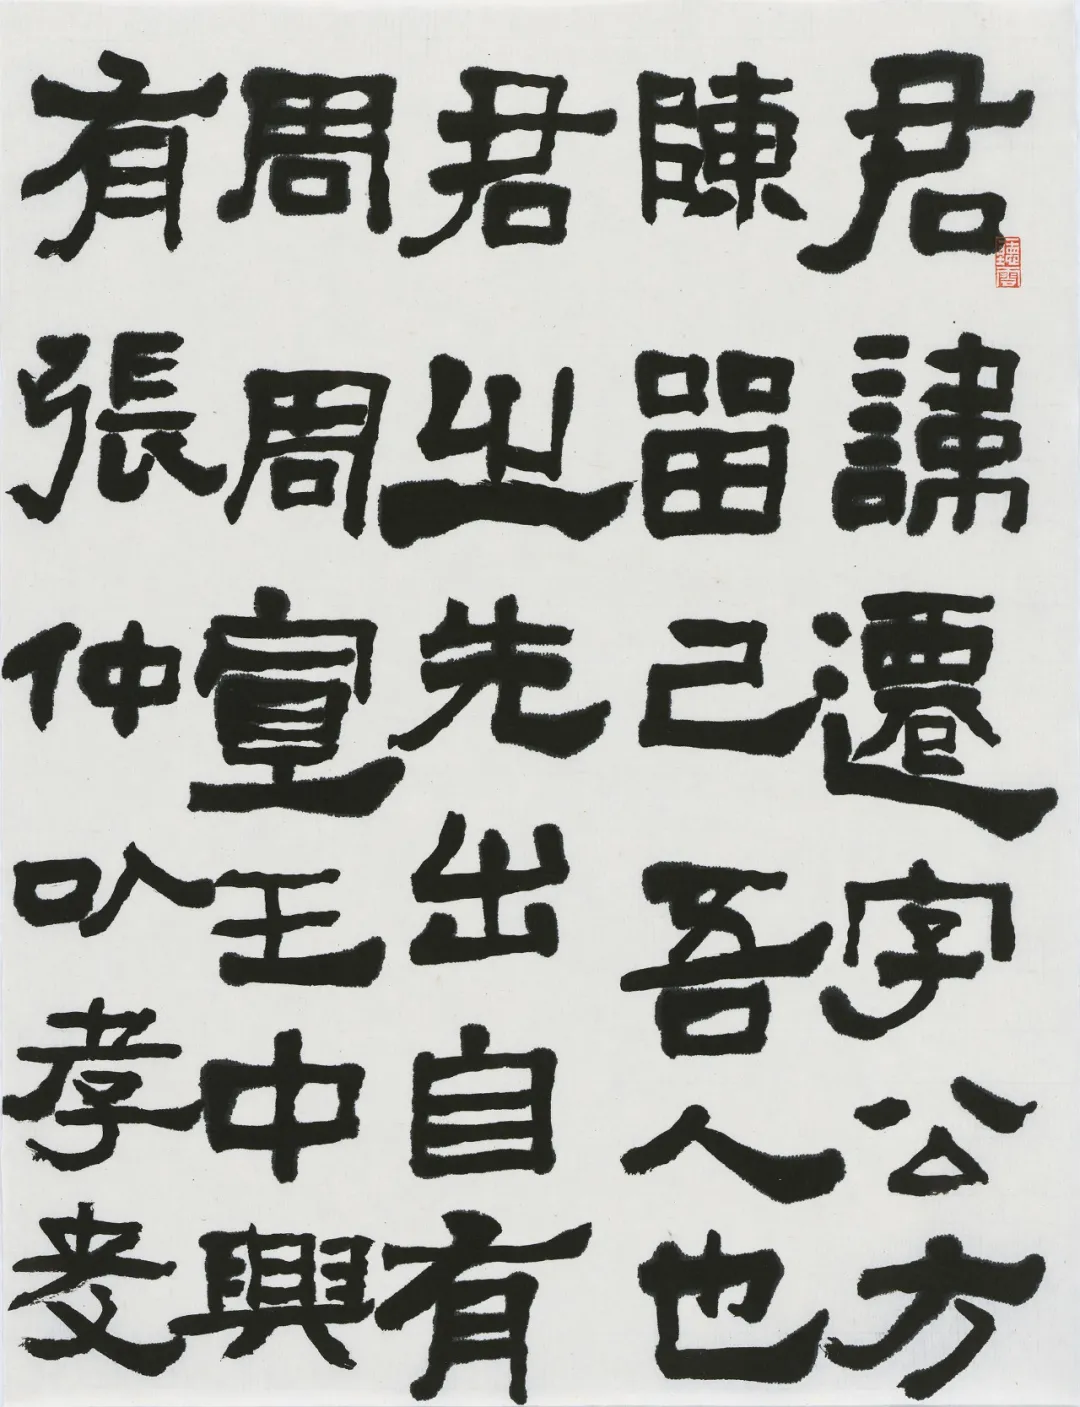 君諱遷字公方
陳留己吾人也
君之先出自有
周周宣王中興
有張仲以孝友
聽雲